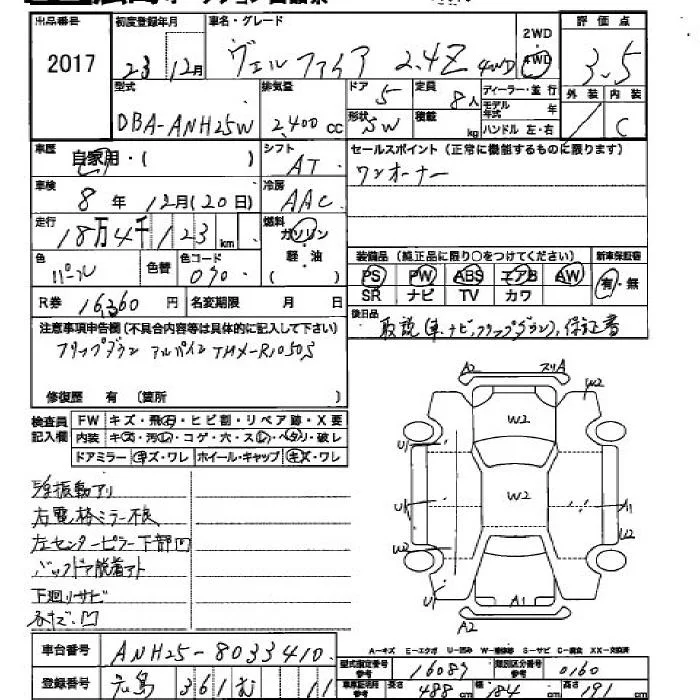 出品番号 初度登録年月 車名・グレード 評価点
2017 23 12月 ヴェルファイア 2.4Z 4WD 2WD 4WD 3.5
型式 排気量 ドア 定員 ディーラー・並行 外装 内装
5 8人 モデル年式 年
DBA-ANH25W 2,400cc 形状 SW 積載 kg ハンドル 左・右 C
車歴 自家用・( ) シフト AT セールスポイント(正常に機能するものに限ります)
ワンオーナー
車検 8年12月(20日) 冷房 AAC
走行 18万4千123km 燃料 ガソリン 軽・油 ( )
色 パール 色替 色コード 070 装備品(純正品に限り○をつけてください) 新車保証書
PS PW ABS エアB AW 有・無
SR ナビ TV カワ
R券 16,360円 名変期限 月 日
後日品 取説(車、ナビ、フリップダウン)、保証書
注意事項申告欄(不具合内容等は具体的に記入して下さい)
フリップダウン アルパイン TMX-R1050S
修復歴 有 (箇所
検査員記入欄 FW キズ・飛石・ヒビ割・リペア跡・X要
内装 キズ・汚レ・コゲ・穴・スレ・ヘタリ・破レ
ドアミラー キズ・ワレ ホイール・キャップ キズ・ワレ
A2 スリA W2
W2
U1
U1 W2 A1
W2 U2
U1 A1
A2
右電格ミラー不良
左センターピラー下部凹
バックドア脱着アト
下廻リサビ
A-キズ E-エクボ U-凹み W-補修跡 S-サビ C-腐食 XX-交換済
車台番号 ANH25-8033410
登録番号 広島 361 む 11
型式指定番号 参考 16087 類別区分番号 参考 0160
車庫証明用 参考 長さ 488cm 幅 184cm 高さ 191cm